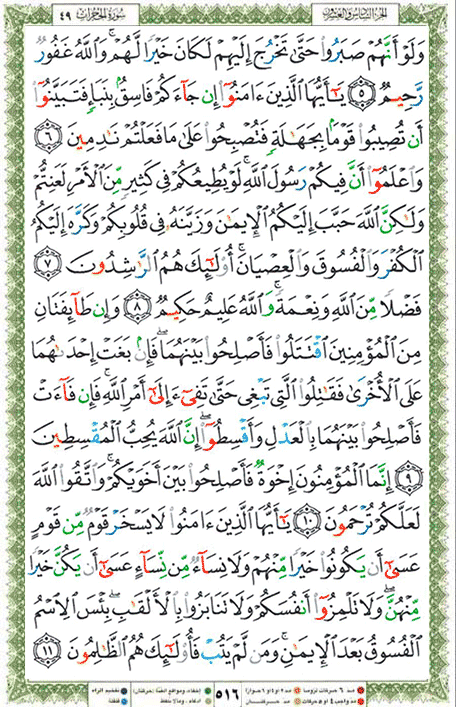 سورة الحجرات ٤٩
الجزء السادس والعشرون
وَلَوْ أَنَّهُمْ صَبَرُوا۟ حَتَّىٰ تَخْرُجَ إِلَيْهِمْ لَكَانَ خَيْرًا لَّهُمْ ۚ وَٱللَّهُ غَفُورٌ
رَّحِيمٌ ۝٥ يَـٰٓأَيُّهَا ٱلَّذِينَ ءَامَنُوٓا۟ إِن جَآءَكُمْ فَاسِقٌۢ بِنَبَإٍ فَتَبَيَّنُوٓا۟
أَن تُصِيبُوا۟ قَوْمًۢا بِجَهَـٰلَةٍ فَتُصْبِحُوا۟ عَلَىٰ مَا فَعَلْتُمْ نَـٰدِمِينَ ۝٦
وَٱعْلَمُوٓا۟ أَنَّ فِيكُمْ رَسُولَ ٱللَّهِ ۚ لَوْ يُطِيعُكُمْ فِى كَثِيرٍ مِّنَ ٱلْأَمْرِ لَعَنِتُّمْ
وَلَـٰكِنَّ ٱللَّهَ حَبَّبَ إِلَيْكُمُ ٱلْإِيمَـٰنَ وَزَيَّنَهُۥ فِى قُلُوبِكُمْ وَكَرَّهَ إِلَيْكُمُ
ٱلْكُفْرَ وَٱلْفُسُوقَ وَٱلْعِصْيَانَ ۚ أُو۟لَـٰٓئِكَ هُمُ ٱلرَّٰشِدُونَ ۝٧
فَضْلًا مِّنَ ٱللَّهِ وَنِعْمَةً ۚ وَٱللَّهُ عَلِيمٌ حَكِيمٌ ۝٨ وَإِن طَآئِفَتَانِ
مِنَ ٱلْمُؤْمِنِينَ ٱقْتَتَلُوا۟ فَأَصْلِحُوا۟ بَيْنَهُمَا ۖ فَإِنۢ بَغَتْ إِحْدَىٰهُمَا
عَلَى ٱلْأُخْرَىٰ فَقَـٰتِلُوا۟ ٱلَّتِى تَبْغِى حَتَّىٰ تَفِىٓءَ إِلَىٰٓ أَمْرِ ٱللَّهِ ۚ فَإِن فَآءَتْ
فَأَصْلِحُوا۟ بَيْنَهُمَا بِٱلْعَدْلِ وَأَقْسِطُوٓا۟ ۖ إِنَّ ٱللَّهَ يُحِبُّ ٱلْمُقْسِطِينَ
۝٩ إِنَّمَا ٱلْمُؤْمِنُونَ إِخْوَةٌ فَأَصْلِحُوا۟ بَيْنَ أَخَوَيْكُمْ ۚ وَٱتَّقُوا۟ ٱللَّهَ
لَعَلَّكُمْ تُرْحَمُونَ ۝١٠ يَـٰٓأَيُّهَا ٱلَّذِينَ ءَامَنُوا۟ لَا يَسْخَرْ قَوْمٌ مِّن قَوْمٍ
عَسَىٰٓ أَن يَكُونُوا۟ خَيْرًا مِّنْهُمْ وَلَا نِسَآءٌ مِّن نِّسَآءٍ عَسَىٰٓ أَن يَكُنَّ خَيْرًا
مِّنْهُنَّ ۖ وَلَا تَلْمِزُوٓا۟ أَنفُسَكُمْ وَلَا تَنَابَزُوا۟ بِٱلْأَلْقَـٰبِ ۖ بِئْسَ ٱلِٱسْمُ
ٱلْفُسُوقُ بَعْدَ ٱلْإِيمَـٰنِ ۚ وَمَن لَّمْ يَتُبْ فَأُو۟لَـٰٓئِكَ هُمُ ٱلظَّـٰلِمُونَ ۝١١
٥١٦